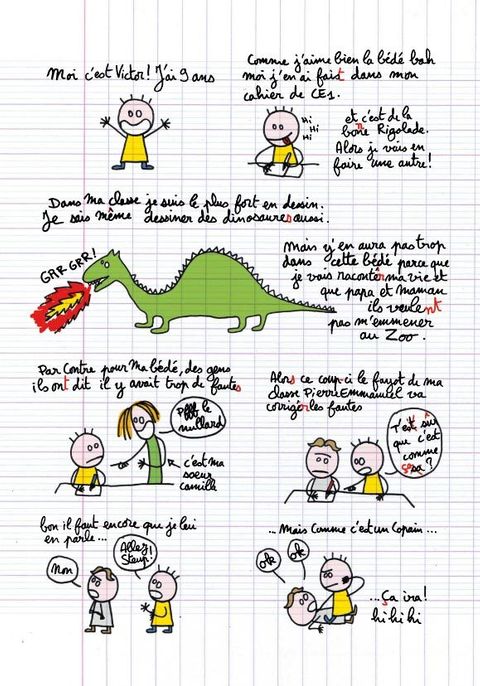 Moi c'est Victor! J'ai 9 ans
Comme j'aime bien la bédé bah
moi j'en ai fait dans mon
cahier de CE1.
Hi
Hi
Hi
et c'est de la
bonne Rigolade.
Alors je vais en
faire une autre!
Dans ma classe je suis le plus fort en dessin.
Je sais même dessiner des dinosaures aussi.
GRR GRR!
Mais y'en aura pas trop
dans cette bédé parce que
je vais raconter ma vie et
que papa et Maman
ils veulent
pas m'emmener
au Zoo.
Par contre pour ma bédé, des gens
ils ont dit il y avait trop de fautes
Pfff le
nullard
c'est ma
soeur
camille
Alors ce coup-ci le fayot de ma
classe Pierre Emmanuel va
corriger les fautes
T'es sur
que c'est
comme
ça?
bon il faut encore que je lui
en parle...
Non
Allez
Steup!
...Mais comme c'est un Copain...
ok
ok
...Ça ira!
hi hi hi